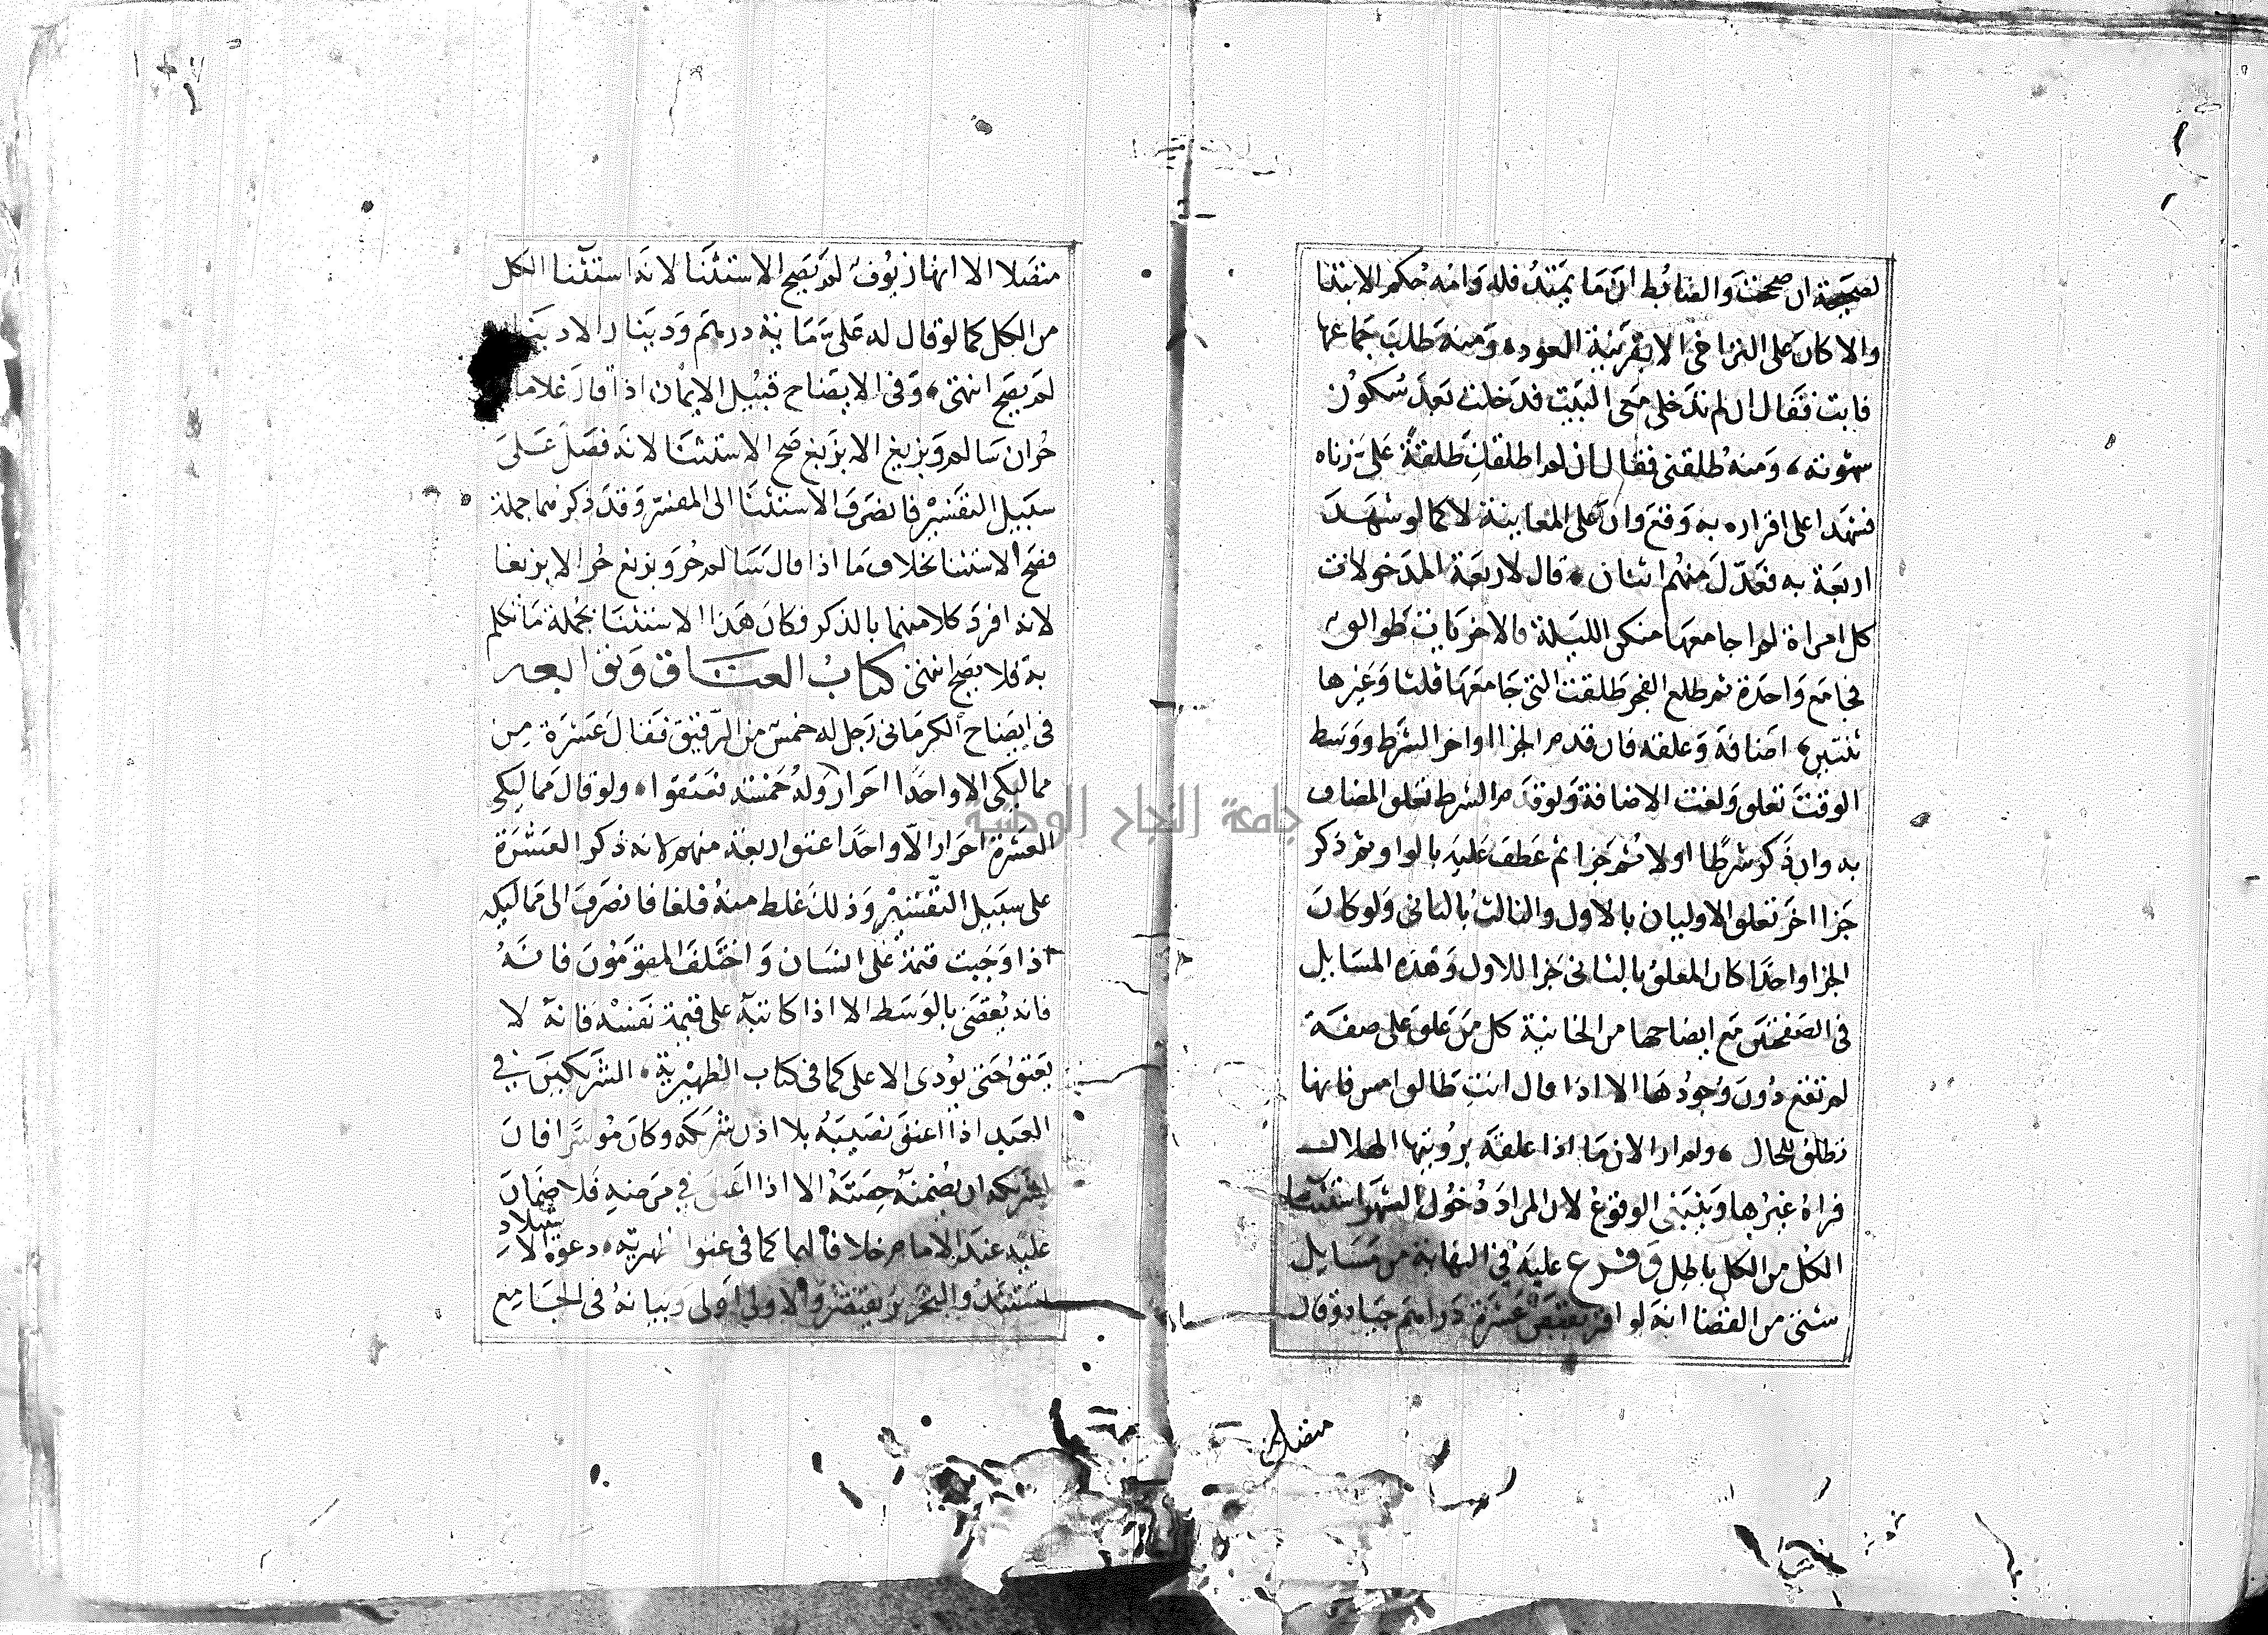 لصحيحة ان صححت والضابط ان ما يمتد فله وامه حكم الابتدا
والا كان على التراخي الا بقرينة العود ومنه طلب جماعها
فابت فقال ان لم تدخلي معى البيت فدخلت بعد سكون
شهوته ومنه طلقنى فقال ان لم اطلقك طلقة على زناه
فشهدا على اقراره به وقع وان على المعاينة لا كما لو شهد
اربعة به فعدل منهم اثنان قال لاربعة المدخولات
كل امراة لم اجامعها منكن الليلة فالاخريات طوالق
فجامع واحدة ثم طلع الفجر طلقت التى جامعها ثلثا وغيرها
ثنتين اضافه وعلقه فان قدم الجزا واخر الشرط ووسط
الوقت تعلق ولغت الاضافة ولو قدم الشرط تعلق المضاف
به وان ذكر شرطا اولا ثم جزا ثم عطف عليه بالواو ثم ذكر
جزا اخر تعلق الاوليان بالاول والثالث بالثانى ولو كان
الجزا واحدا كان المعلق بالثانى جزا للاول وهذه المسايل
فى الصفحتين مع ايضاحها من الخانية كل من علق على صفة
لم تقع دون وجودها الا اذا قال انت طالق امس فانها
تطلق للحال ولم ار الان ما اذا علقه برويتها الهلال
فراه غيرها وينبغى الوقوع لان المراد دخول الشهر استثنا
الكل من الكل باطل وفرع عليه فى النهاية من مسايل
شتى من القضا انه لو اقر بقبض عشرة دراهم جياد وقال
متصلا
متصلا الا انها زيوف لم يصح الاستثنا لانه استثنا الكل
من الكل كما لو قال له على ماية درهم ودينار الا دينا
لم يصح انتهى وفى الايضاح قبيل الايمان اذا قال غلاما
حران سالم وبزيغ الا بزيغ صح الاستثنا لانه فصل على
سبيل التفسير فانصرف الاستثنا الى المفسر وقد ذكرهما جملة
فصح الاستثنا بخلاف ما اذا قال سالم حر وبزيغ حر الا بزيغا
لانه افرد كلا منهما بالذكر فكان هذا الاستثنا بجملة ما تكلم
به فلا يصح انتهى كتاب العتاق وتوابعه
فى ايضاح الكرمانى رجل له خمس من الرقيق فقال عشرة من
مماليكى الا واحدا احرار وله خمسة تعتقوا ولو قال مماليكى
العشرة احرار الا واحدا عتق اربعة منهم لانه ذكر العشرة
على سبيل التفسير وذلك غلط منه فلغا فانصرف الى مماليكه
اذا وجبت قيمة على انسان واختلف المقومون فانه
فانه يقضى بالوسط الا اذا كاتبه على قيمة نفسه فانه لا
يعتق حتى يودى الاعلى كما فى كتاب الظهيرية الشريكين فى
العبد اذا اعتق نصيبه بلا اذن شريكه وكان موسرا فان
لشريكه ان يضمنه حصته الا اذا اعتق فى مرضه فلا ضمان
عليه عند الامام خلافا لهما كما فى عتق الظهيرية دعوة الاستيلاد
تستند والتحرير يقتصر والاولى اولى وبيانه فى الجامع
جامعة النجاح الوطنية